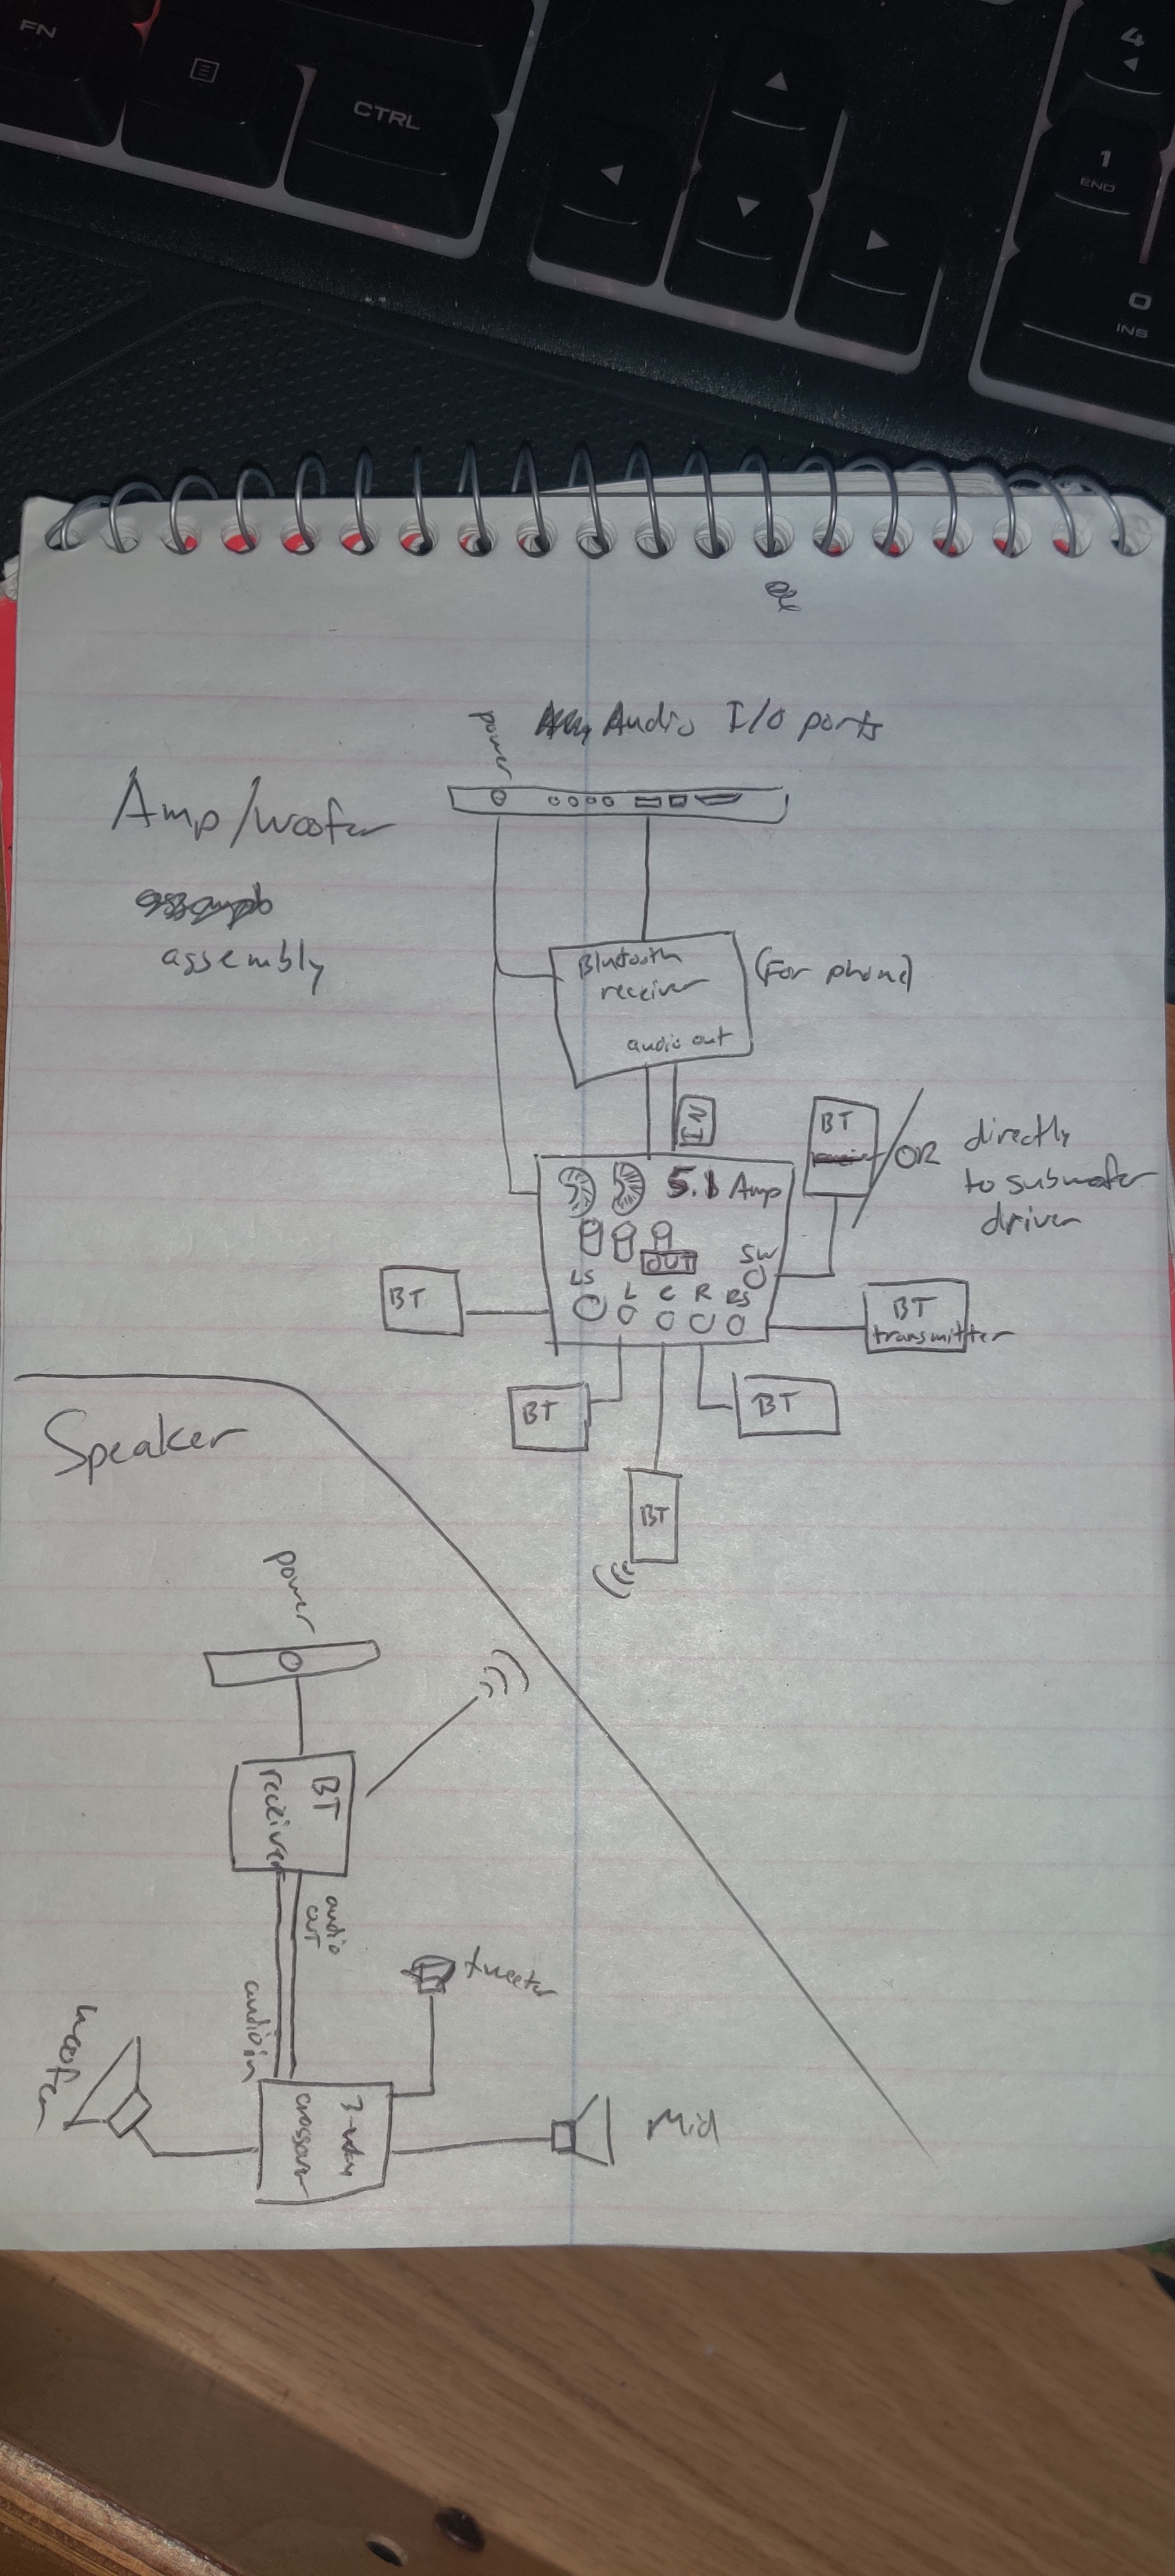 FN
CTRL
4
1
END
0
INS
power
Audio I/O ports
Amp/woofer
assembly
Bluetooth
receiver
audio out
(For phone)
IN
BT
OR
directly
to subwoofer
driver
5.1 Amp
OUT
SW
LS
L
C
R
RS
BT
BT
transmitter
BT
BT
BT
Speaker
power
BT
receiver
audio
out
audio in
tweeter
woofer
3-way
crossover
Mid